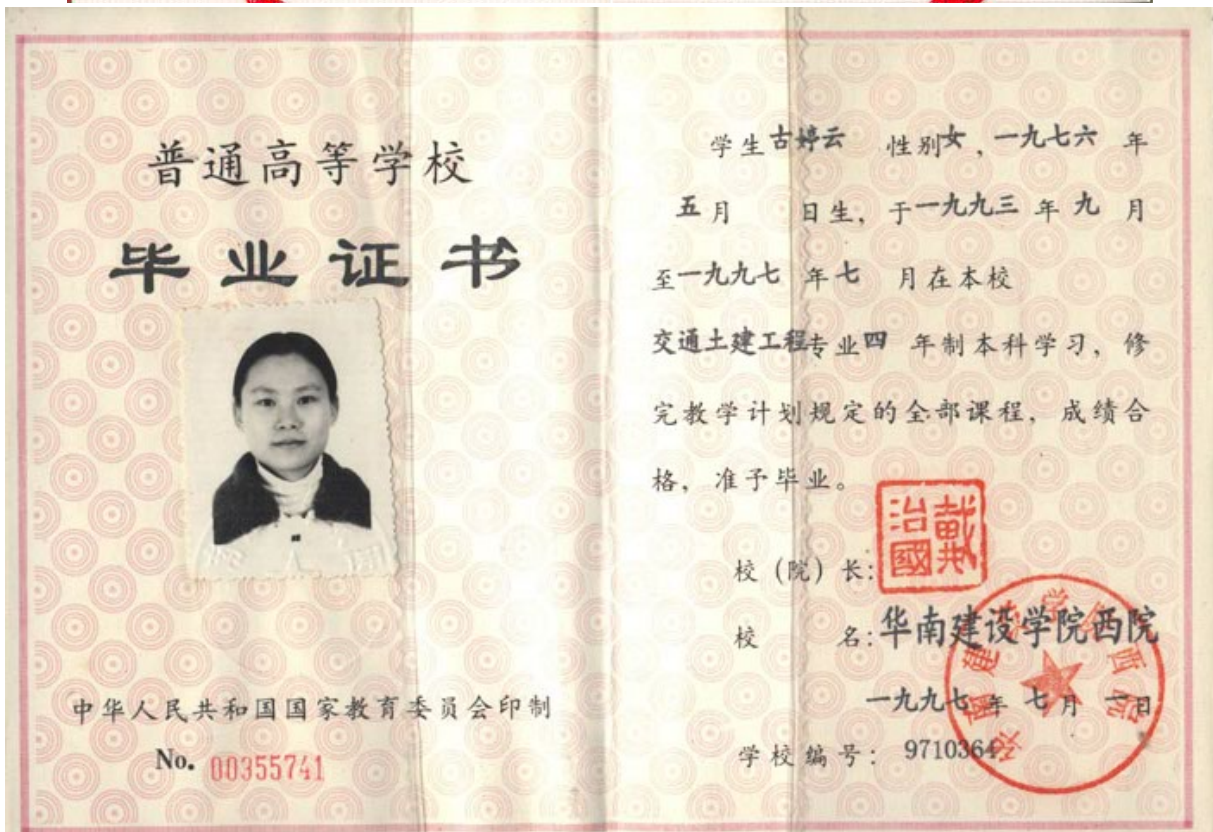 普通高等学校
毕业证书
中华人民共和国国家教育委员会印制
No. 00355741
学生古婷云 性别女，一九七六 年
五月 日生，于一九九三 年 九 月
至一九九七 年 七 月在本校
交通土建工程专业四 年制本科学习，修
完教学计划规定的全部课程，成绩合
格，准予毕业。
校（院）长：
戴治國
校 名：华南建设学院西院
一九九七 年 七 月 一日
学校编号：9710364
华南建设学院西院